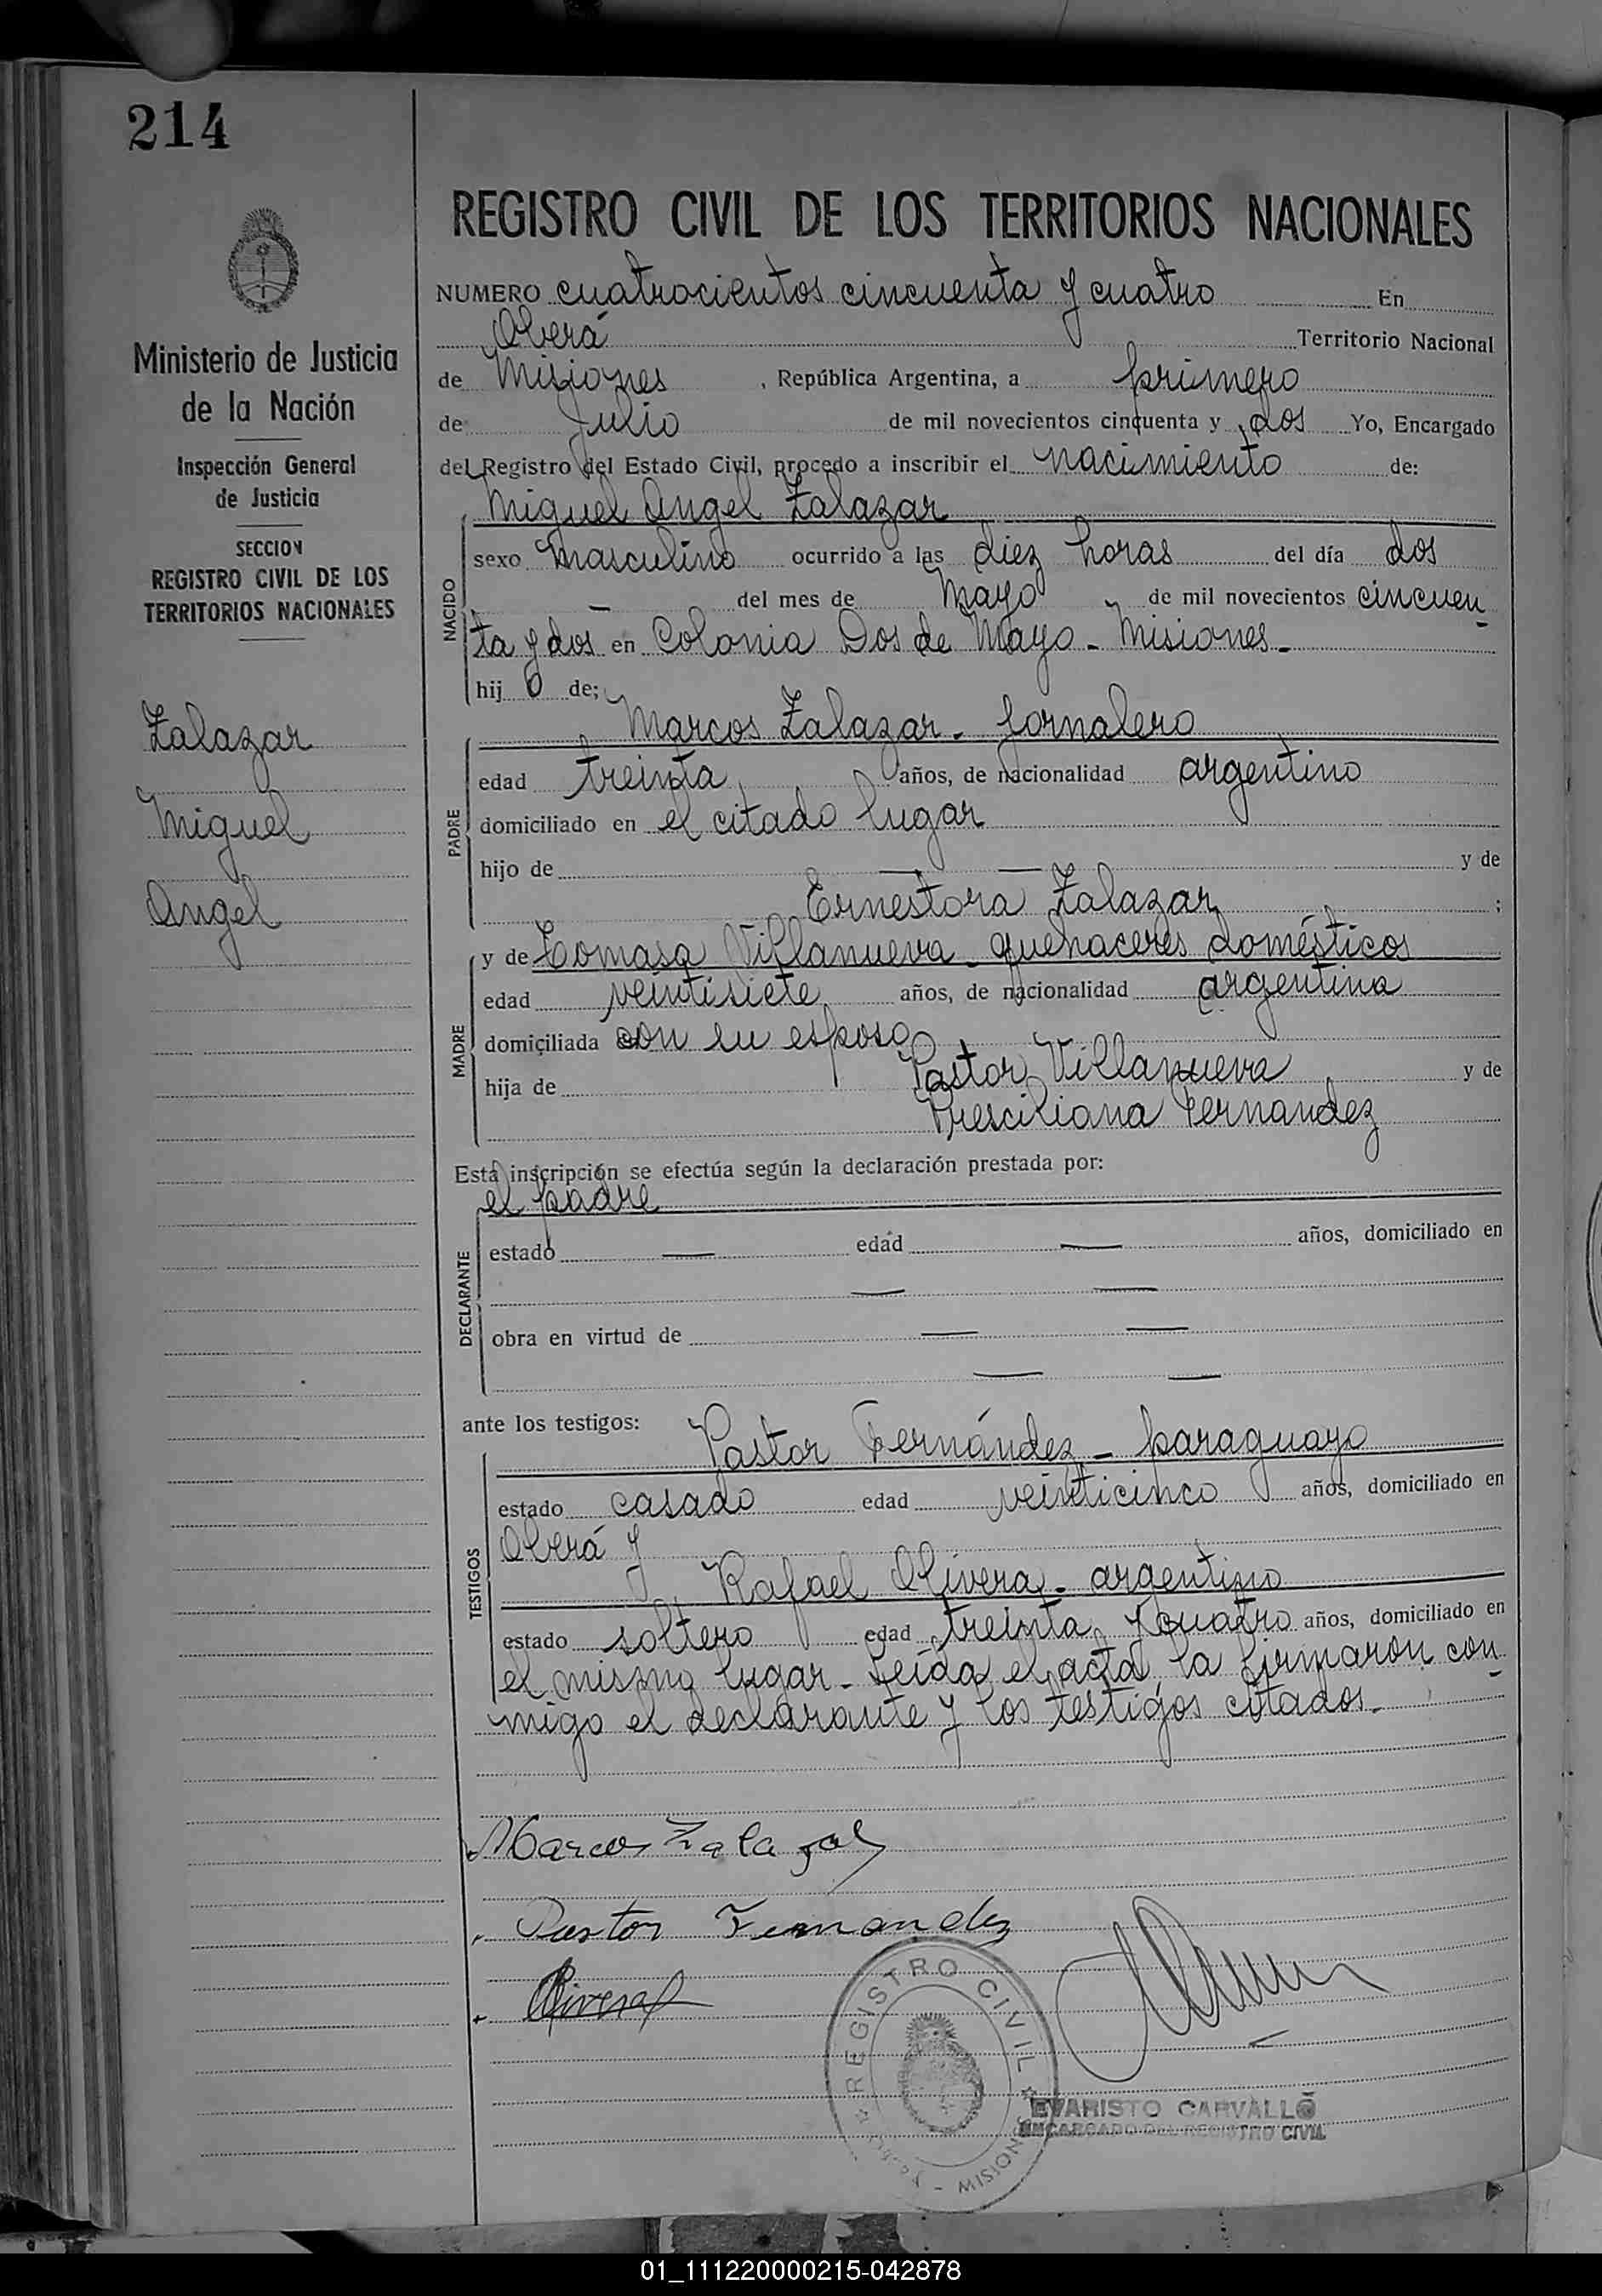 214
Ministerio de Justicia
de la Nación
Inspección General
de Justicia
SECCION
REGISTRO CIVIL DE LOS
TERRITORIOS NACIONALES
Zalazar
Miguel
Angel
REGISTRO CIVIL DE LOS TERRITORIOS NACIONALES
NUMERO cuatrocientos cincuenta y cuatro En
Oberá Territorio Nacional
de Misiones, República Argentina, a primero
de Julio de mil novecientos cincuenta y dos Yo, Encargado
del Registro del Estado Civil, procedo a inscribir el nacimiento de:
Miguel Angel Zalazar
NACIDO
sexo masculino ocurrido a las diez horas del día dos
— del mes de Mayo de mil novecientos cincuen-
ta y dos en Colonia Dos de Mayo - Misiones -
hijo de;
Marcos Zalazar - Jornalero
PADRE
edad treinta años, de nacionalidad argentino
domiciliado en el citado lugar
hijo de — — y de
Ernestora Zalazar ;
MADRE
y de Tomasa Villanueva - quehaceres domésticos
edad veintisiete años, de nacionalidad argentina
domiciliada con su esposo
hija de Pastor Villanueva y de
Presciliana Fernandez
Esta inscripción se efectúa según la declaración prestada por:
el padre
DECLARANTE
estado — edad — años, domiciliado en
— —
obra en virtud de — —
— —
ante los testigos:
Pastor Fernández - paraguayo
TESTIGOS
estado casado edad veinticinco años, domiciliado en
Oberá y
Rafael Olivera - argentino
estado soltero edad treinta y cuatro años, domiciliado en
el mismo lugar - Leída el acta la firmaron con-
migo el declarante y los testigos citados.-
Marcos Zalazar
Pastor Fernandez
Olivera
REGISTRO CIVIL
MISIONES
EVARISTO CARVALLO
ENCARGADO DEL REGISTRO CIVIL
01_111220000215-042878